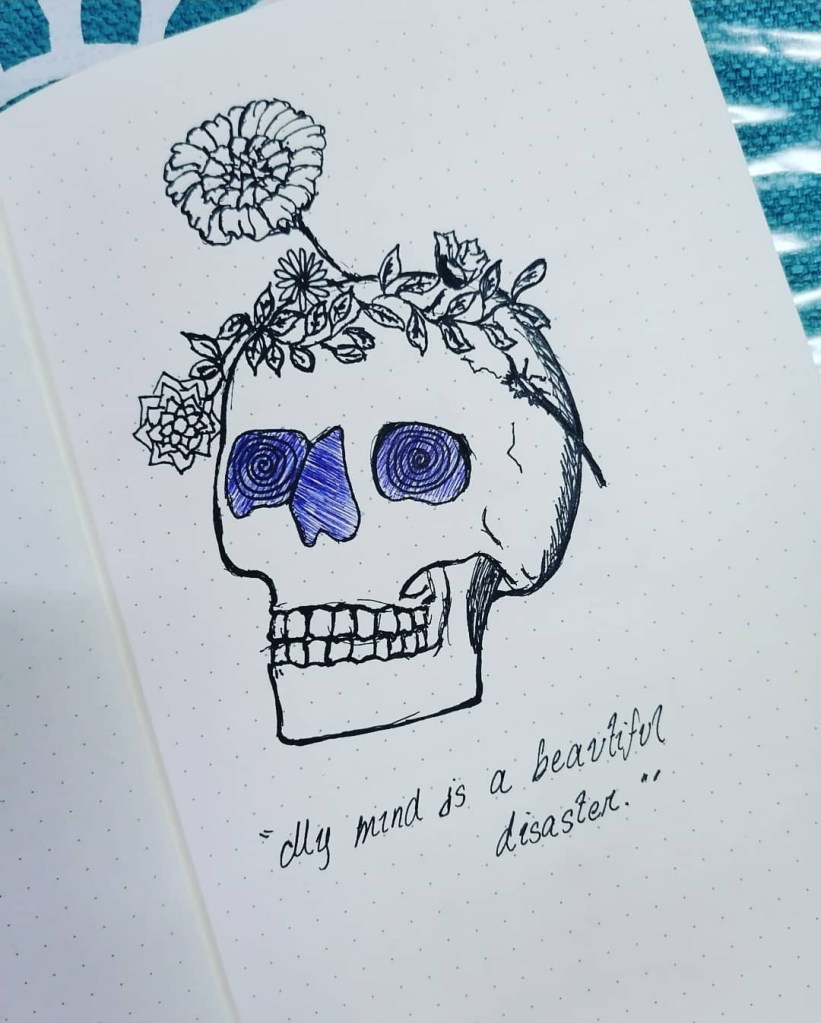 "My mind is a beautiful
disaster."